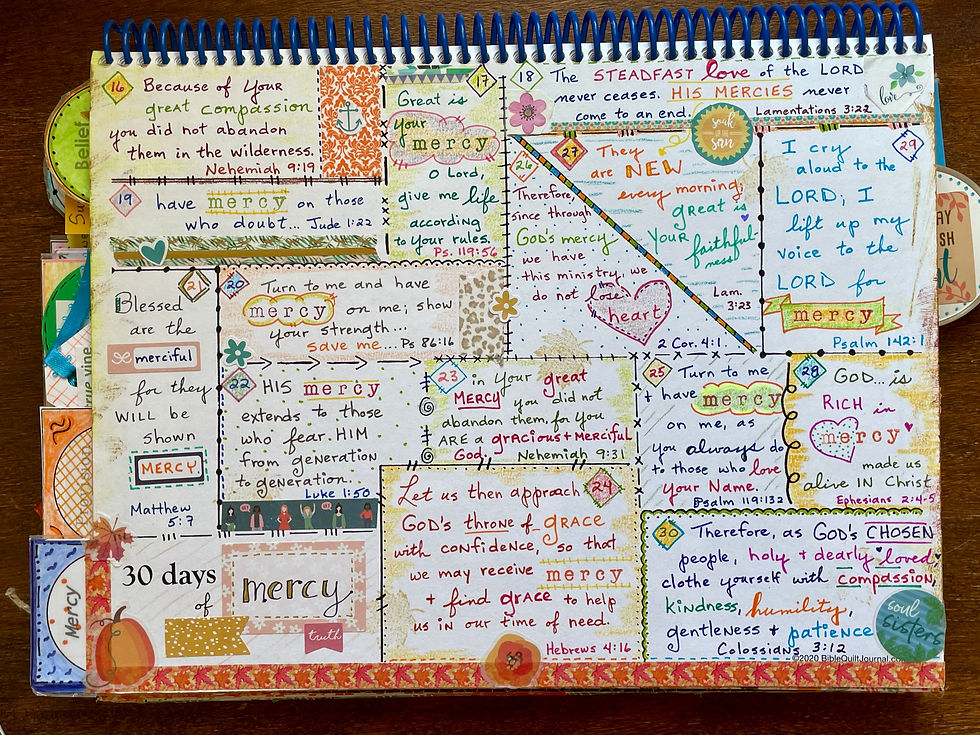 16
Because of Your
great compassion
you did not abandon
them in the wilderness.
Nehemiah 9:19
17
Great is
your
mercy
O Lord,
give me life
according
to your rules.
Ps. 119:56
18
The STEADFAST love of the LORD
never ceases. HIS MERCIES never
come to an end. Lamentations 3:22
love
soak
UP THE
sun
19
have mercy on those
who doubt... Jude 1:22
20
Turn to me and have
mercy on me; show
your strength...
save me... Ps 86:16
21
Blessed
are the
merciful
for they
WILL be
shown
MERCY.
Matthew
5:7
22
HIS mercy
extends to those
who fear HIM
from generation
to generation..
Luke 1:50
23
in Your great
MERCY you did not
abandon them, for you
ARE a gracious + MERCIFUL
God. Nehemiah 9:31
24
Let us then approach
GOD'S throne of grace
with confidence, so that
we may receive mercy
+ find grace to help
us in our time of need.
Hebrews 4:16
25
Turn to me
+ have mercy
on me, as
you always do
to those who love
your Name.
Psalm 119:132
26
Therefore,
since through
God's mercy
we have
this ministry, we
do not lose
heart
2 Cor. 4:1
27
They
are NEW
every morning;
great is
YOUR faithful
ness
Lam.
3:23
28
GOD...is
RICH in
mercy
made us
alive IN Christ
Ephesians 2:4-5
29
I cry
aloud to the
LORD; I
lift up my
voice to the
LORD for
mercy
Psalm 142:1
30
Therefore, as GOD'S CHOSEN
people, holy + dearly loved,
clothe yourself with compassion,
kindness, humility,
gentleness + patience
Colossians 3:12
soul
sisters
©2020 BibleQuiltJournal.co
30 days
of
mercy
truth
Belief
true vine
Mercy